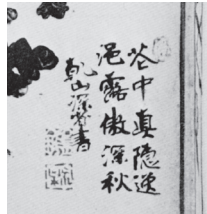 谷中真隠逸
浥露傲深秋
乾山深省書